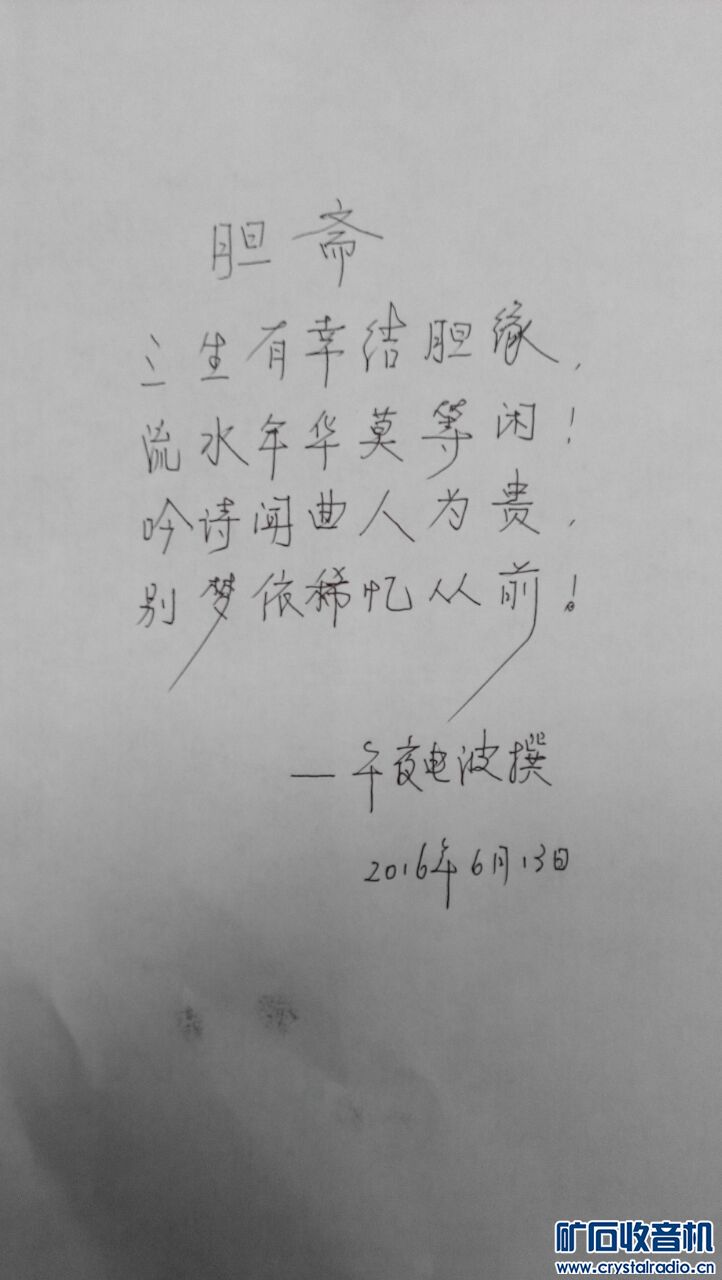 胆斋
三生有幸结胆缘，
流水年华莫等闲！
吟诗闻曲人为贵，
别梦依稀忆从前！
—午夜电波撰
2016年6月13日
矿石收音机
www.crystalradio.cn